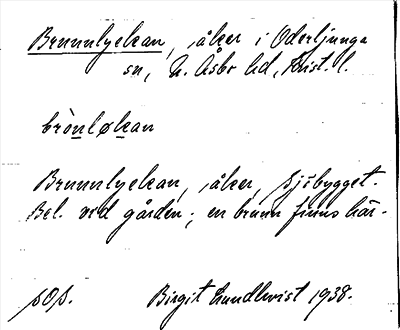 Brunnlyckan, åker i Oderljunga
sn, N. Åsbo hd, Krist. l.
brònløkan
Brunnlyckan, åker, Sjöbygget.
Bel. vid gården; en brunn finns här.
sOs. Birgit Lundkvist 1938.